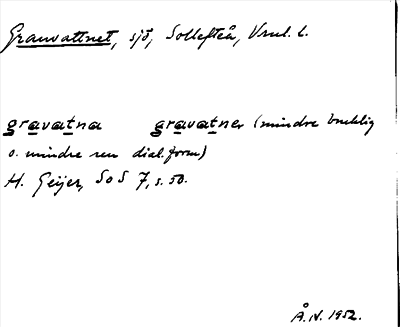 Granvattnet, sjö, Sollefteå, Vnl. l.
gravatna gravatner (mindre bruklig
o. mindre ren dial. form)
H. Geijer, SoS 7, s. 50.
Å. N. 1952.